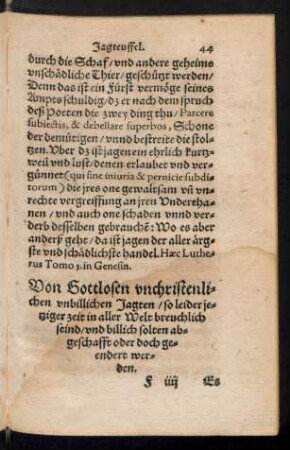 Jagteuffel. 44
durch die Schaf/ vnd andere geheime
vnschädliche Thier/ geschützt werden/
Denn das ist ein Fürst vermöge seines
Ampts schuldig/ dz er nach dem spruch
deß Poeten die zwey ding thu/ Parcere
subiectis, & debellare superbos, Schone
der demütigen/ vnnd bestreite die stol-
tzen. Vber dz ist jagen ein ehrlich kurtz-
weil vnd lust/ denen erlaubet vnd ver-
günnet (qui sine iniuria & pernicie subdi-
torum) die jres one gewaltsam vñ vn-
rechte vergreiffung an jren Vnderetha-
nen/ vnd auch one schaden vnnd ver-
derb desselben gebraucht: Wo es aber
anderß geht/ da ist jagen der aller ärg-
ste vnd schädlichste handel. Hæc Luthe-
rus Tomo 3. in Genesin.
Von Gottlosen vnchristenli-
chen vnbillichen Jagten/ so leider je-
tziger zeit in aller Welt breuchlich
seind/ vnd billich solten ab-
geschafft oder doch ge-
endert wer-
den.
F iiij Es